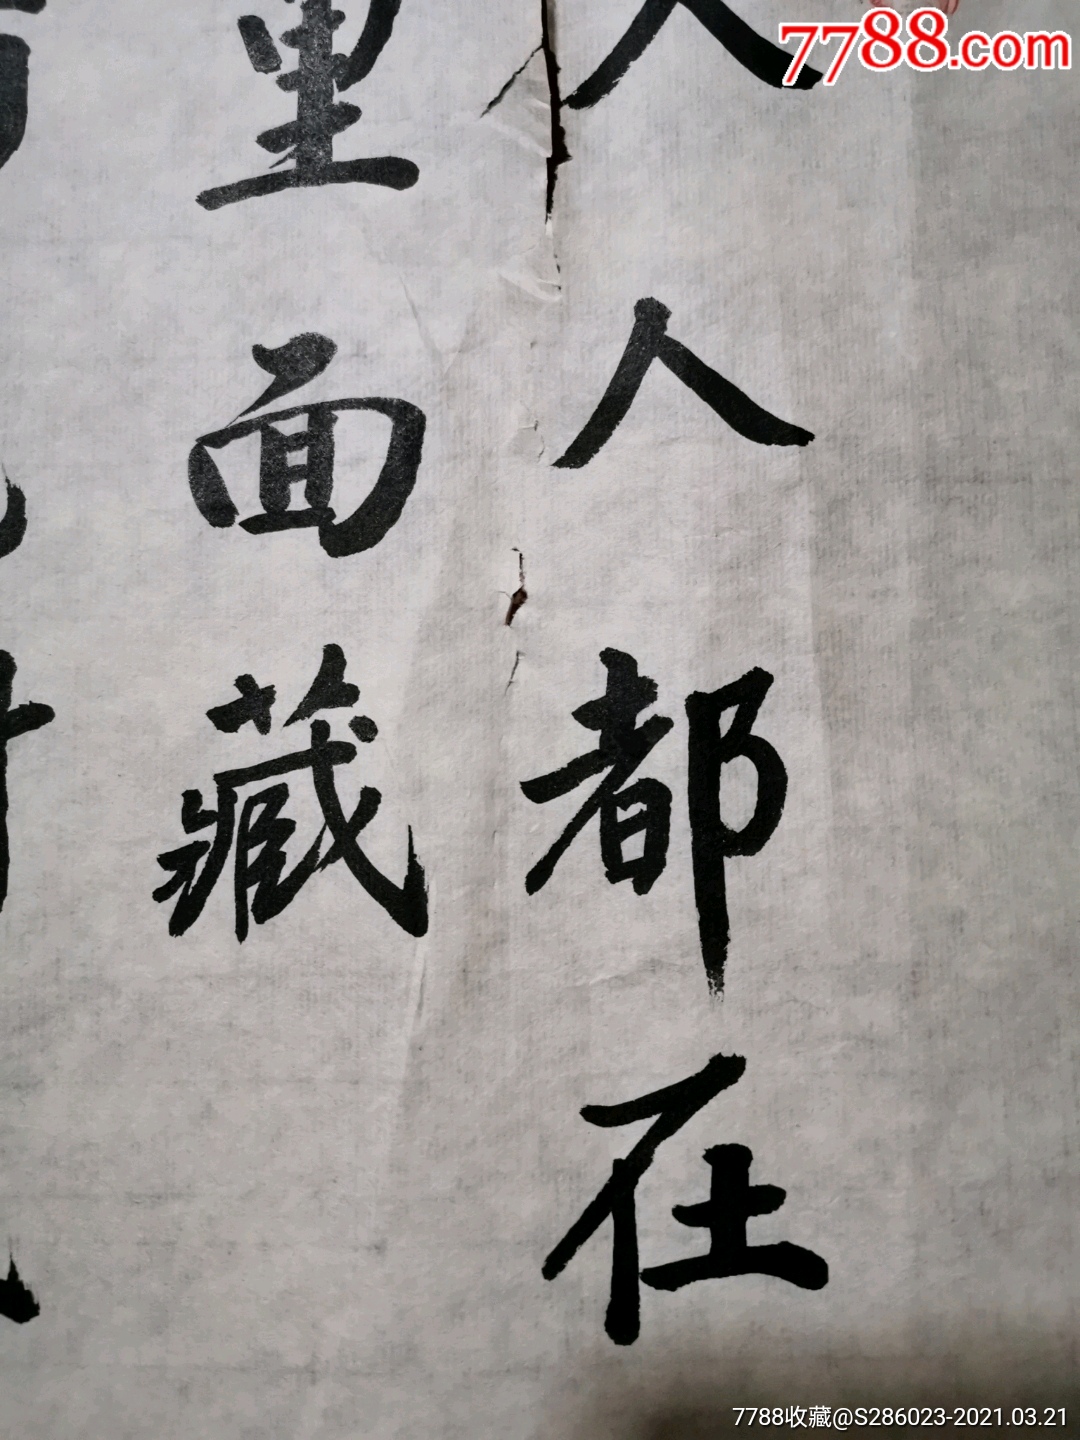 人人都在
里面藏
7788.com
7788收藏@S286023-2021.03.21